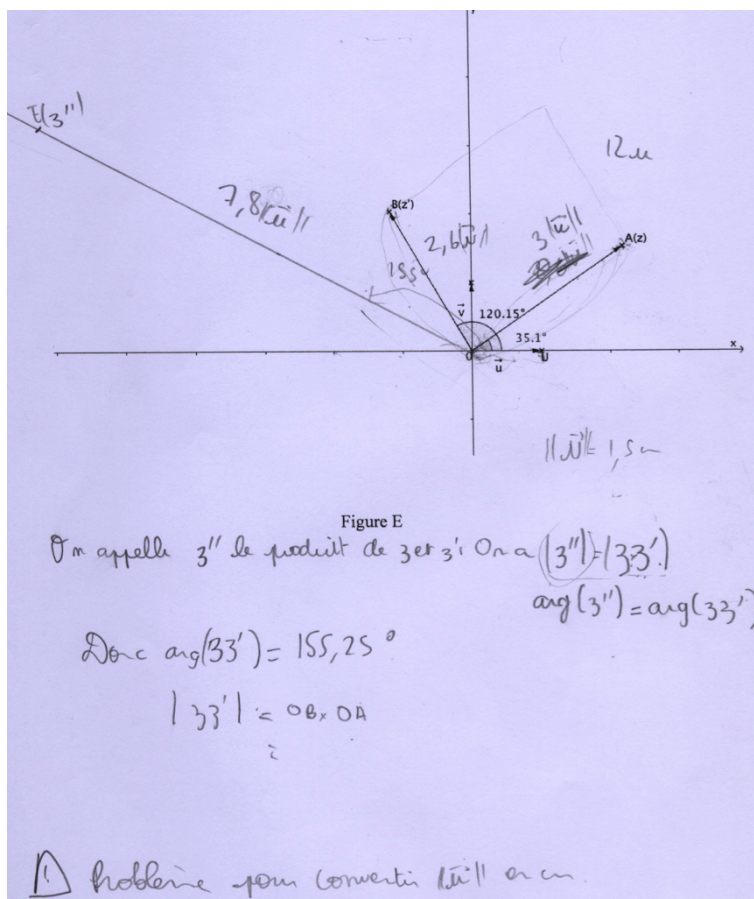 y
E(z'')
12u
7,8||u⃗||
B(z')
2,6||u⃗||
3||u⃗||
A(z)
155°
v⃗
120.15°
35.1°
x
O
u⃗
U
||u⃗||= 1,5cm
Figure E
On appelle z'' le produit de z et z'. On a |z''|=|zz'|
arg(z'')=arg(zz')
Donc arg(zz')= 155,25°
|zz'| = OB×OA
=
! Problème pour convertir ||u⃗|| en cm.